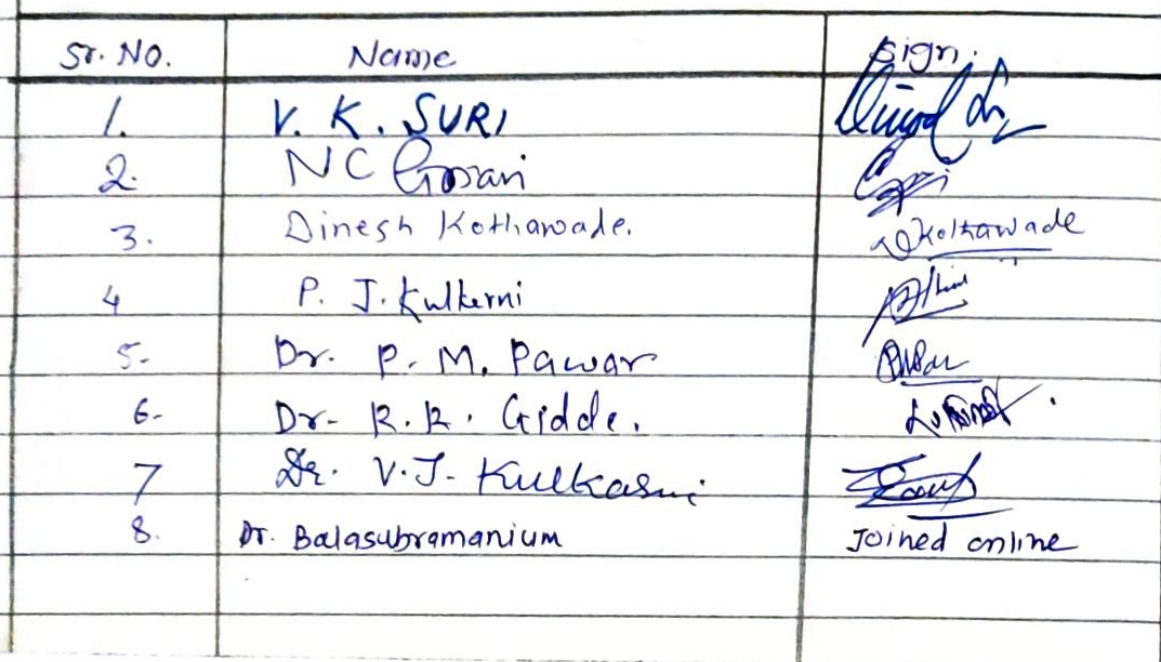 Sr. No. Name Sign.
1. V. K. SURI
2. NC
3. Dinesh Kothawade. DKothawade
4 P. J. Kulkerni
5- Dr. P. M. Pawar
6- Dr- R. R. Gidde.
7 Dr. V. J. Kulkarni
8. Dr. Balasubramanium Joined online